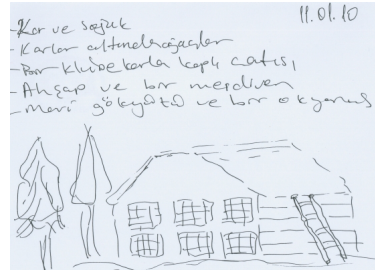 11.01.10
- Kar ve soğuk
- Karlar altında ağaçlar
- Bir klübe karla kaplı çatısı
- Ahşap ve bir merdiven
- Mavi gökyüzü ve bir okyanus